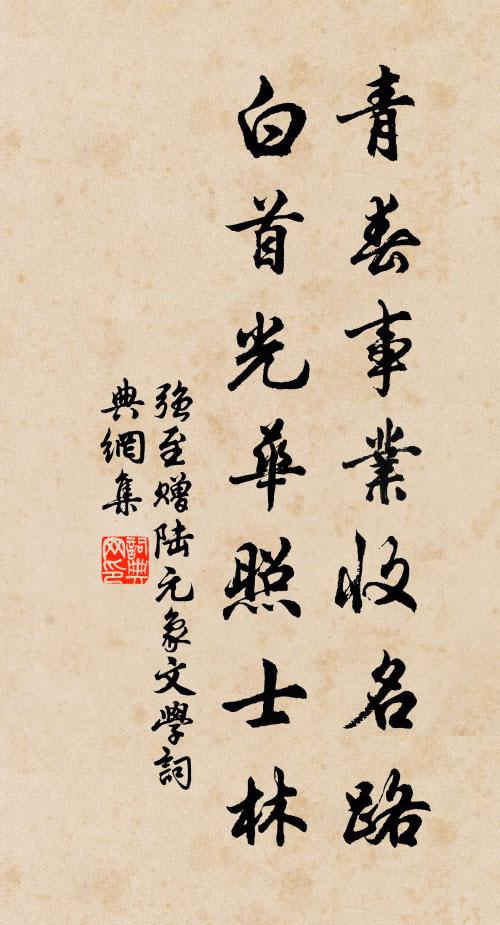 青春事業收名路
白首光華照士林
強至贈陸元象文學詞
典網集
詞典網印